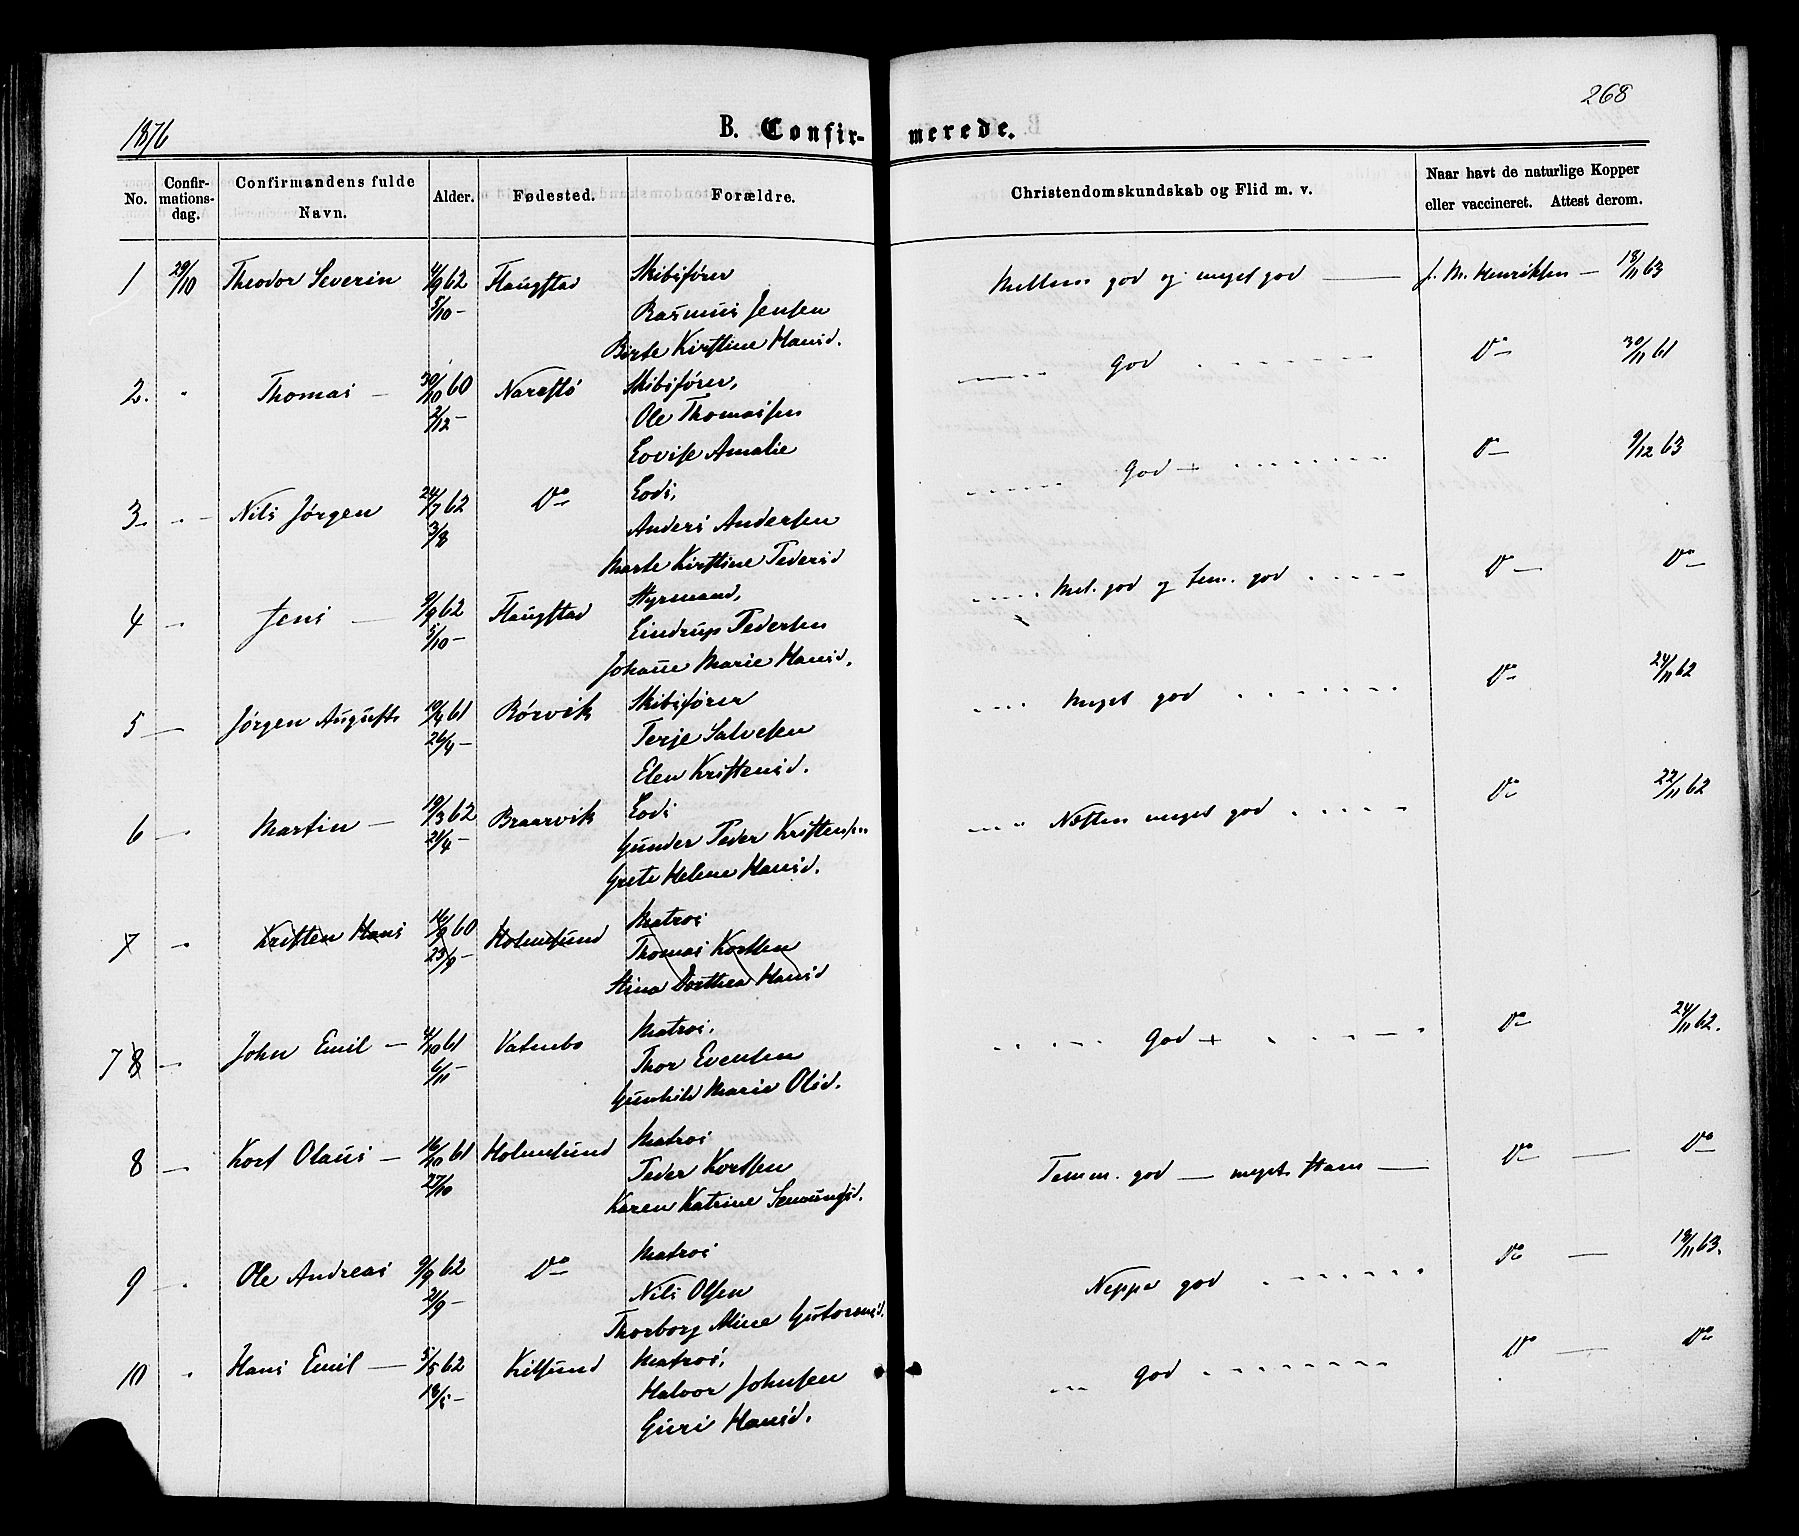 268
1876
B. Confir- merede.
No. Confir-mations-dag. Confirmandens fulde Navn. Alder. Fødested. Forældre. Christendomskundskab og Flid m. v. Naar havt de naturlige Kopper eller vaccineret. Attest derom.
1 29/10 Theodor Severin 4/9 62 Flaugstad Skibsfører Mellem god og meget god — J. M. Henriksen — 18/11 63
5/10 — Rasmus Jensen
Birte Kirstine Hansd.
2. " Thomas — 30/10 60 Narestø Skibsfører, god Do 30/11 61
2/12 — Ole Thomassen
Lovise Amalie
3 " Nils Jørgen 24/7 62 Do Lods, God + Do 9/12 63
3/8 Anders Andersen
Marte Kirstine Pedersd
4 " Jens — 9/9 62 Flaugstad Styrmand, Mel. god og tem. god Do — Do
5/10 — Lindrup Pedersen
Johanne Marie Hansd.
5 — Jørgen August 19/4 61 Børvik Skibsfører Meget god Do 24/11 62
26/4 — Terje Salvesen
Elen Kristensd.
6 — Martin — 19/3 62 Braarvik Lods Næsten meget god Do 22/11 62
21/4 — Gunder Peder Kristensen
Grete Helene Hansd.
7 " Kristen Hans 16/9 60 Holmesund Matros
23/9 — Thomas Kortsen
Stina Dorthea Hansd
7 8 — John Emil — 4/10 61 Vatnebo Matros, God + Do 24/11 62.
6/11 — Thor Evensen
Gunhild Marie Olsd.
8 — Kort Olaus — 16/10 61 Holmesund Matros Temm. god — meget Do — Do
27/10 Peder Kortsen
Karen Katrine
9 " Ole Andreas 9/9 62 Do Matros Neppe god Do — 18/11 63.
21/9 — Nils Olsen
Thorborg Mine Gutormsd.
10 " Hans Emil — 5/5 62 Kilsund Matros, god Do — Do
18/5 — Halvor Johnsen
Guri Hansd.